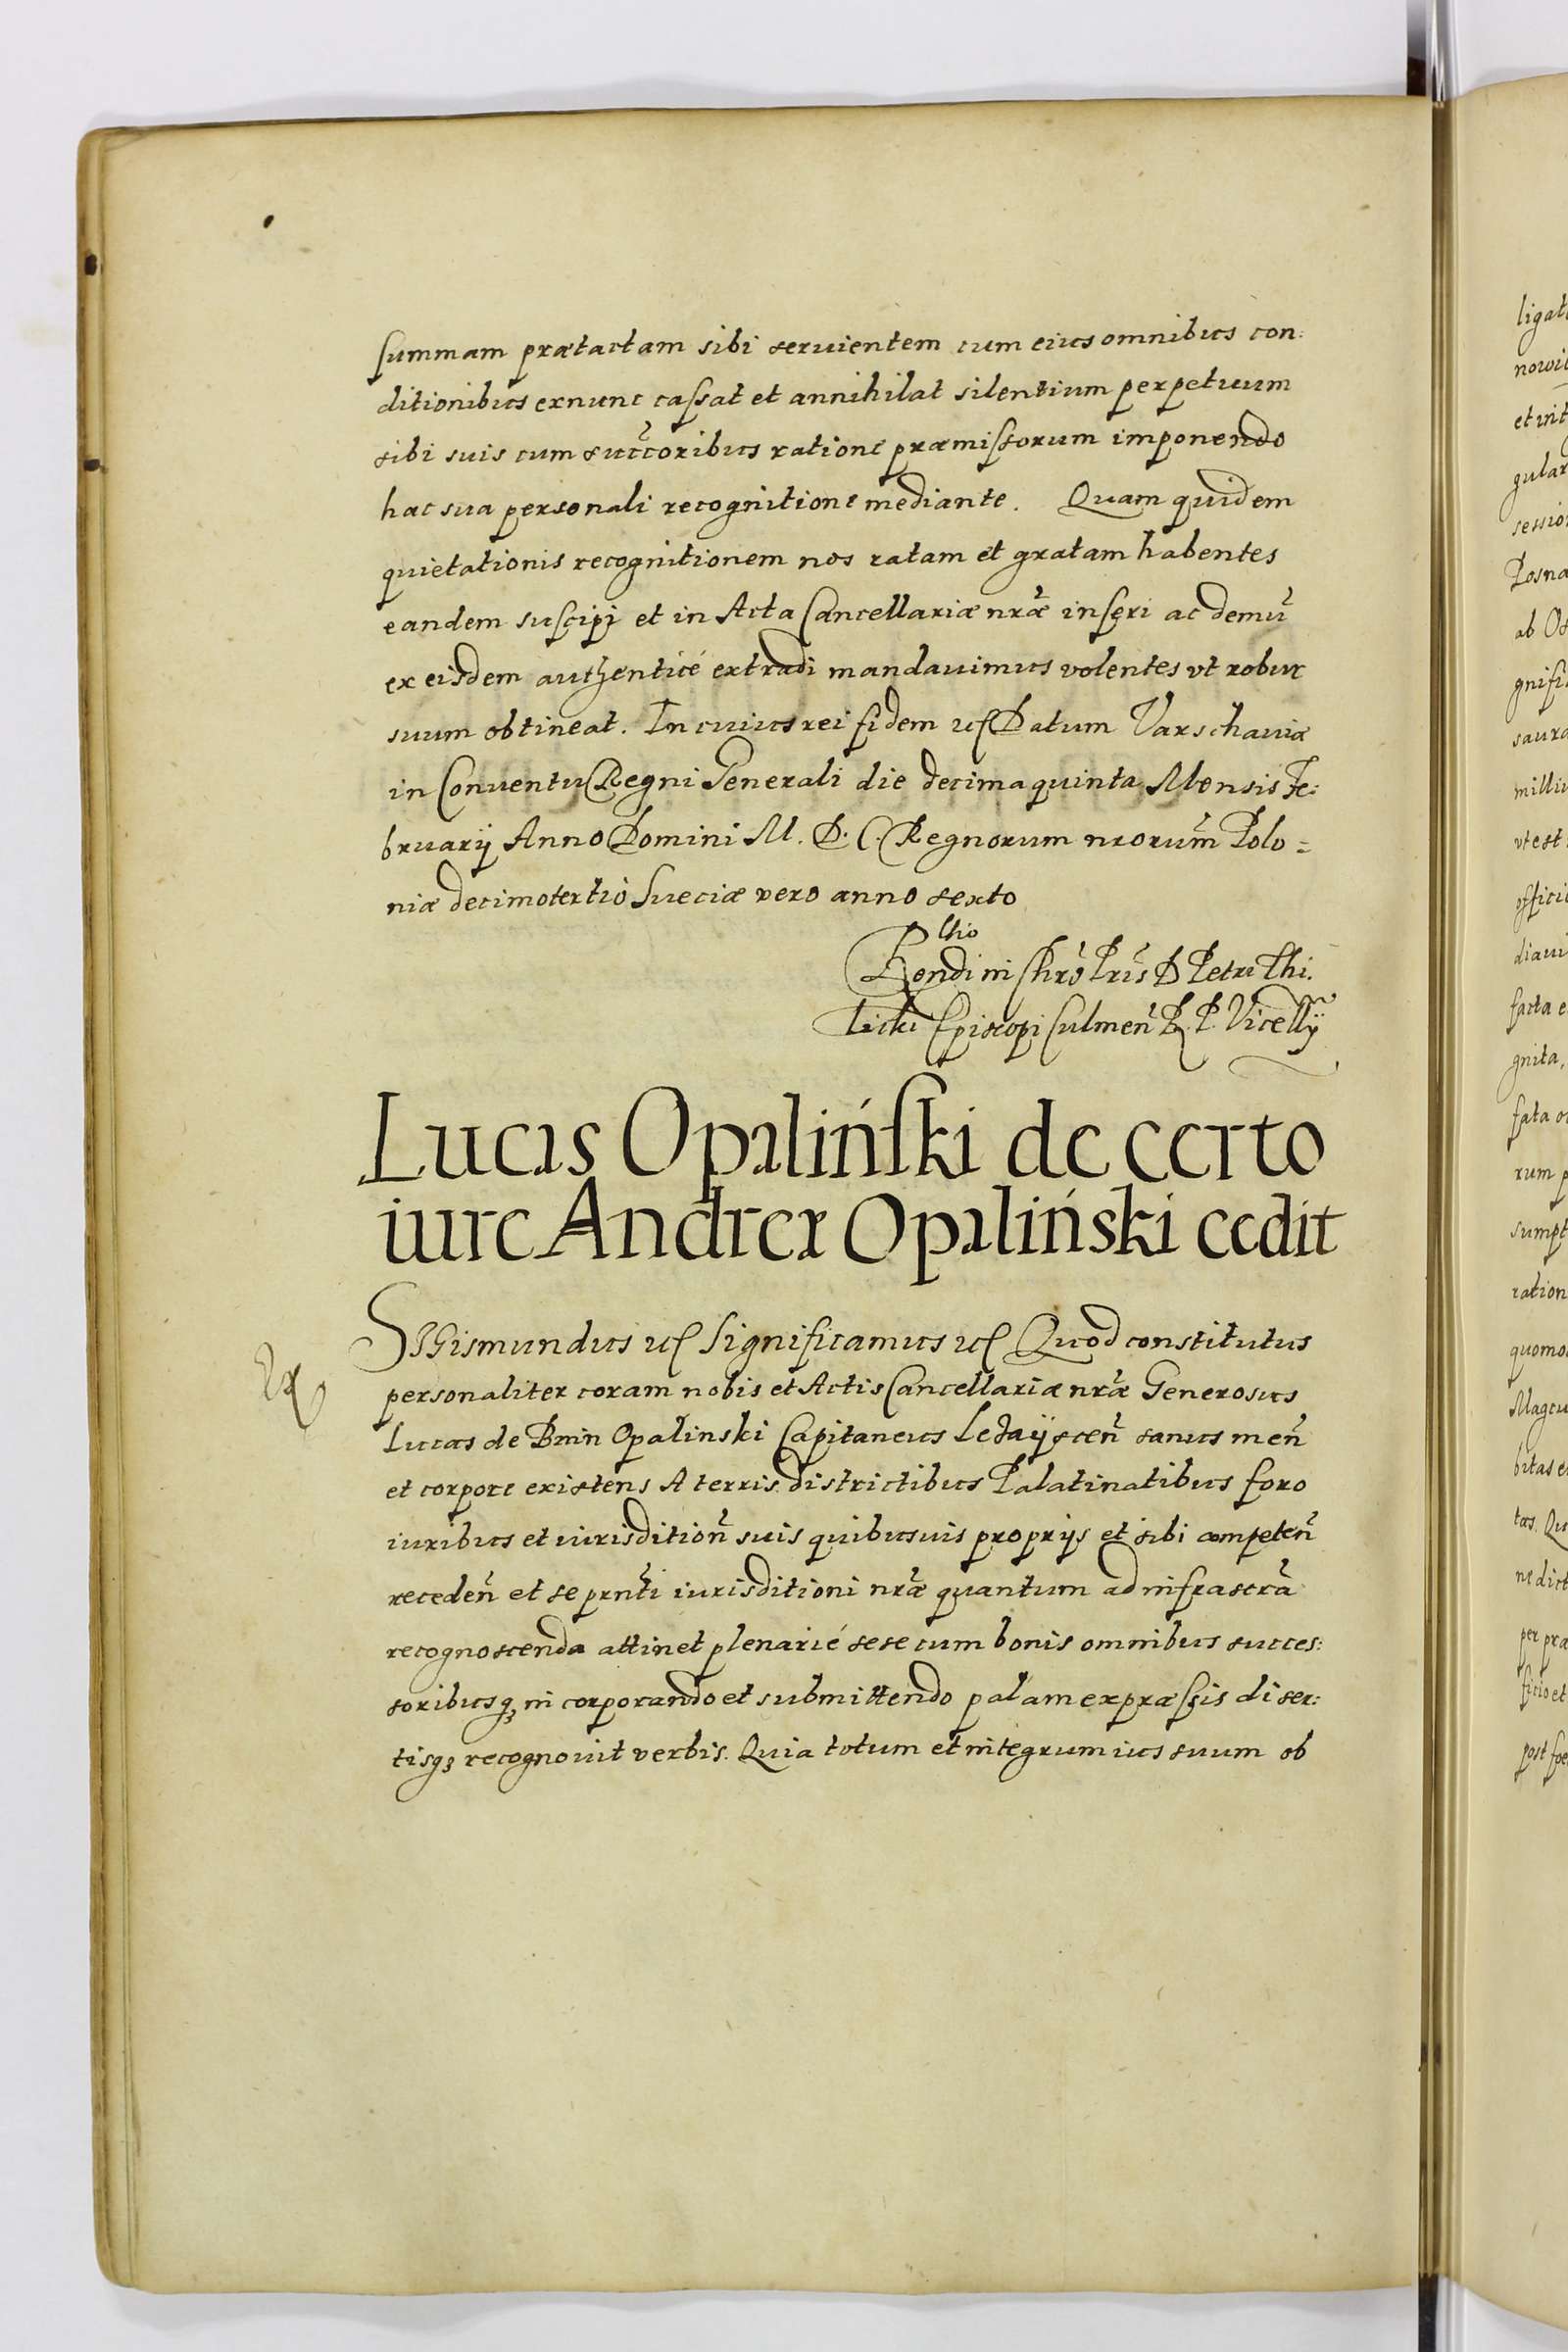 summam prætactam sibi seruientem cum eius omnibus con:
ditionibus exnunc cassat et annihilat silentium perpetuum
sibi suis cum succ̃oribus ratione præmissorum imponendo
hac sua personali recognitione mediante. Quam quidem
quietationis recognitionem nos ratam et gratam habentes
eandem suscipi et in Acta Cancellariæ nr̃æ inseri ac demũ
ex eisdem authenticé extradi mandauimus volentes vt robur
suum obtineat. In cuius rei fidem Datum Varschauiæ
in Conuentu Regni Generali die decima quinta Mensis Fe:
bruarij Anno Domini M. D. C. Regnorum nrorum̃ Polo=
niæ decimotertio Sueciæ vero anno sexto
Rlhio
Rndi in Chrõ Pris̃ D Petri Thi.
licki Episcopi Culmeñ R. P. Vicellij
Lucas Opaliński de certo
iure Andreæ Opaliński cedit
SIGismundus Significamus Quod constitutus
personaliter coram nobis et Actis Cancellariæ nr̃æ Generosus
Lucas de Bnin Opalinski Capitaneus Lezaysceñ sanus meñ
et corpore existens A terris districtibus Palatinatibus foro
iuribus et iurisditioñ suis quibusuis proprijs et sibi competeñ
recedeñ et se prñti iurisditioni nr̃æ quantum ad infrascrã
recognoscenda attinet plenarié sese cum bonis omnibus succes:
soribusq3 incorporando et submittendo palam expræssis diser:
tisq3 recognouit verbis. Quia totum et integrum ius suum ob
nowi
et int
gular
sessio
Posna
ab
gnifi
saura
milliu
vt est
offici
diaui
facta e
gnita,
fata
rum p
sumpt
ration
quomo
bitas
tas. Qu
ne dict
per præ
ficio et
post